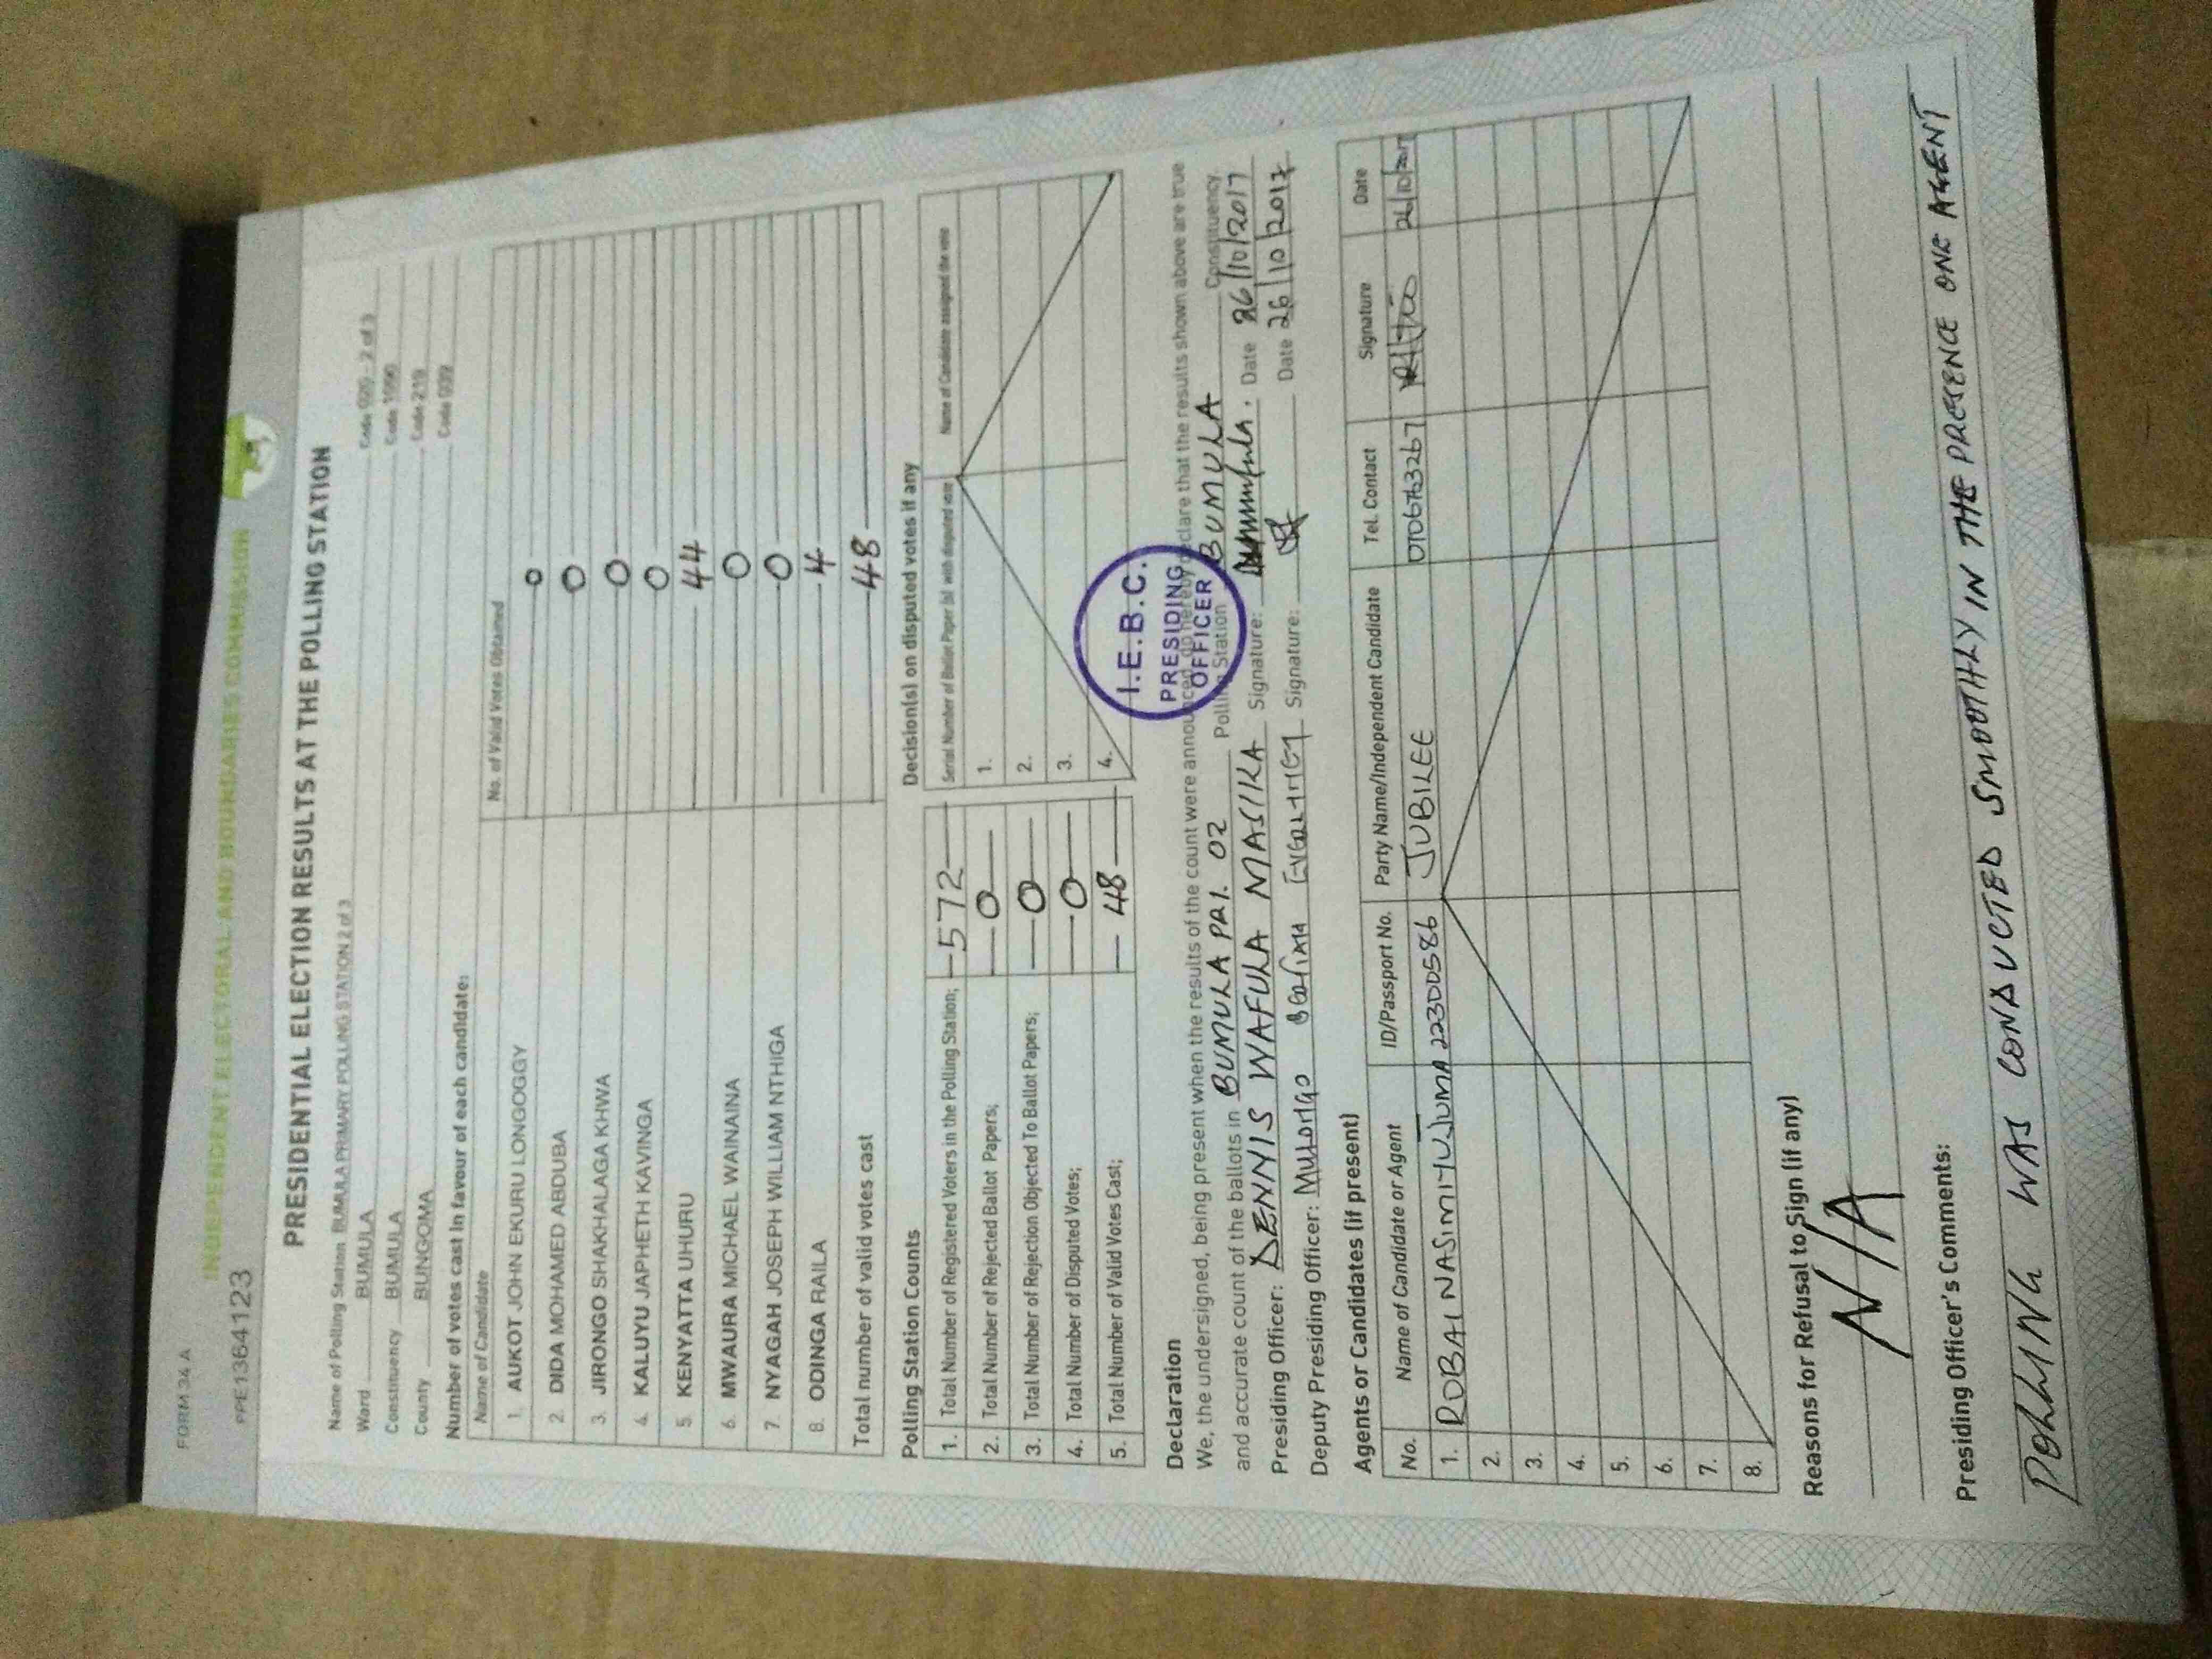 FORM 34 A
INDEPENDENT ELECTORAL AND BOUNDARIES COMMISSION
PPE1364123
PRESIDENTIAL ELECTION RESULTS AT THE POLLING STATION
Name of Polling Station BUMULA PRIMARY POLLING STATION 2 of 3 Code 020 - 2 of 3
Ward BUMULA Code 1090
Constituency BUMULA Code 219
County BUNGOMA Code 039
Number of votes cast in favour of each candidate:
Name of Candidate No. of Valid Votes Obtained
1. AUKOT JOHN EKURU LONGOGGY 0
2. DIDA MOHAMED ABDUBA 0
3. JIRONGO SHAKHALAGA KHWA 0
4. KALUYU JAPHETH KAVINGA 0
5. KENYATTA UHURU 44
6. MWAURA MICHAEL WAINAINA 0
7. NYAGAH JOSEPH WILLIAM NTHIGA 0
8. ODINGA RAILA 4
Total number of valid votes cast 48
Polling Station Counts
1. Total Number of Registered Voters in the Polling Station; 572
2. Total Number of Rejected Ballot Papers; 0
3. Total Number of Rejection Objected To Ballot Papers; 0
4. Total Number of Disputed Votes; 0
5. Total Number of Valid Votes Cast; 48
Decision(s) on disputed votes if any
Serial Number of Ballot Paper (s) with disputed vote Name of Candidate assigned the vote
1.
2.
3.
4.
I.E.B.C.
PRESIDING
OFFICER
Declaration
We, the undersigned, being present when the results of the count were announced, do hereby declare that the results shown above are true
and accurate count of the ballots in BUMULA PRI. 02 Polling Station BUMULA Constituency
Presiding Officer: DENNIS WAFULA MASIKA Signature: Date 26/10/2017
Deputy Presiding Officer: Signature: Date 26/10/2017
Agents or Candidates (if present)
No. Name of Candidate or Agent ID/Passport No. Party Name/Independent Candidate Tel. Contact Signature Date
1. ROBAI NASIMIYU JUMA 22300586 JUBILEE 0706763267 26/10/2017
2.
3.
4.
5.
6.
7.
8.
Reasons for Refusal to Sign (if any)
N/A
Presiding Officer's Comments:
POLLING WAS CONDUCTED SMOOTHLY IN THE PRESENCE ONE AGENT